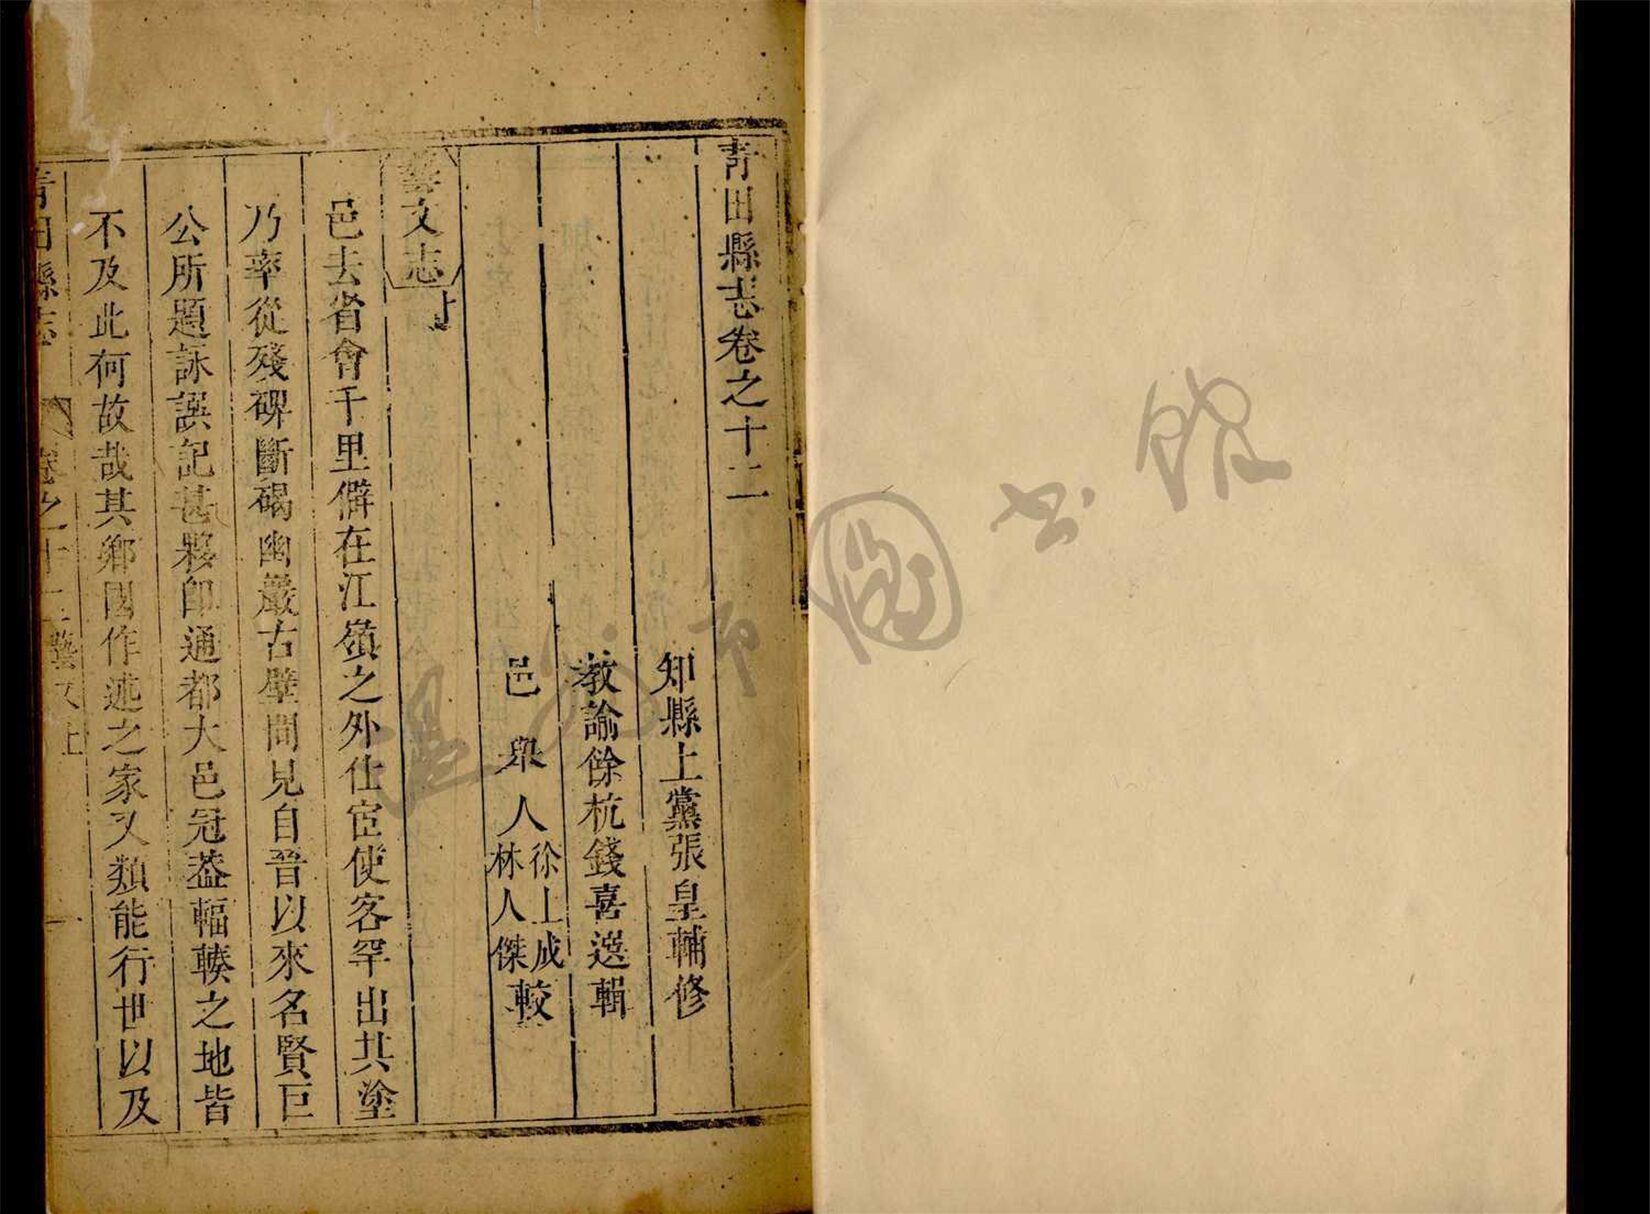 青田縣志卷之十二
知縣上黨張皇輔修
教諭餘杭錢喜選輯
邑舉人徐上成林人傑較
藝文志上
邑去省會千里僻在江嶺之外仕宦使客罕出其塗
乃率從殘碑斷碣幽巖古壁間見自晉以來名賢巨
公所題詠譔記甚夥即通都大邑冠葢輻輳之地皆
不及此何故哉其鄉國作述之家又類能行世以及
青田縣志 卷之十二 藝文上 一
溫州市圖书馆